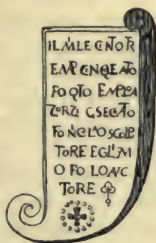 IL MLE CNTOR
EMP CINQEATO
FO QTO EMPLA
ZORZI CSEGATO
FO NCL'O SCOLP
TORE EGL'M
O FO LONC
TORE